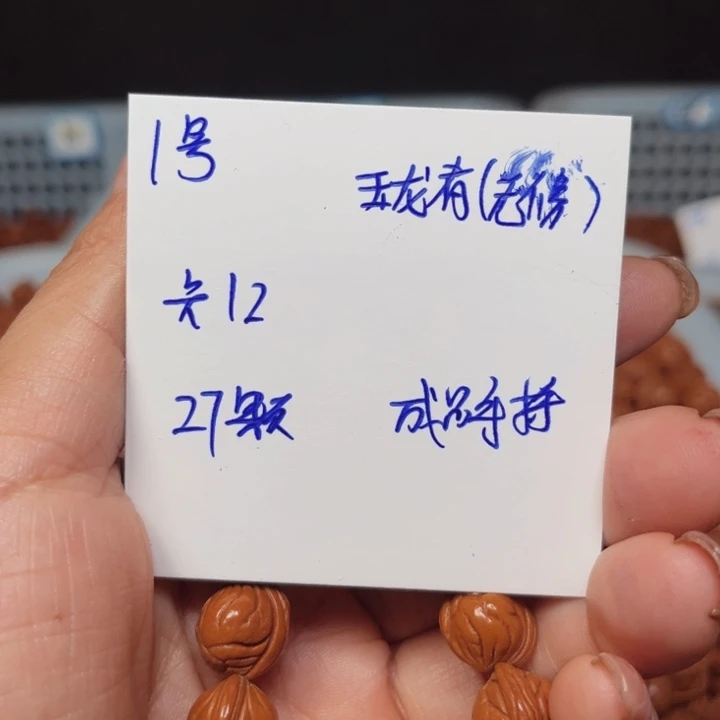 1号
玉龙有(无傍)
六12
27颗 成品手持